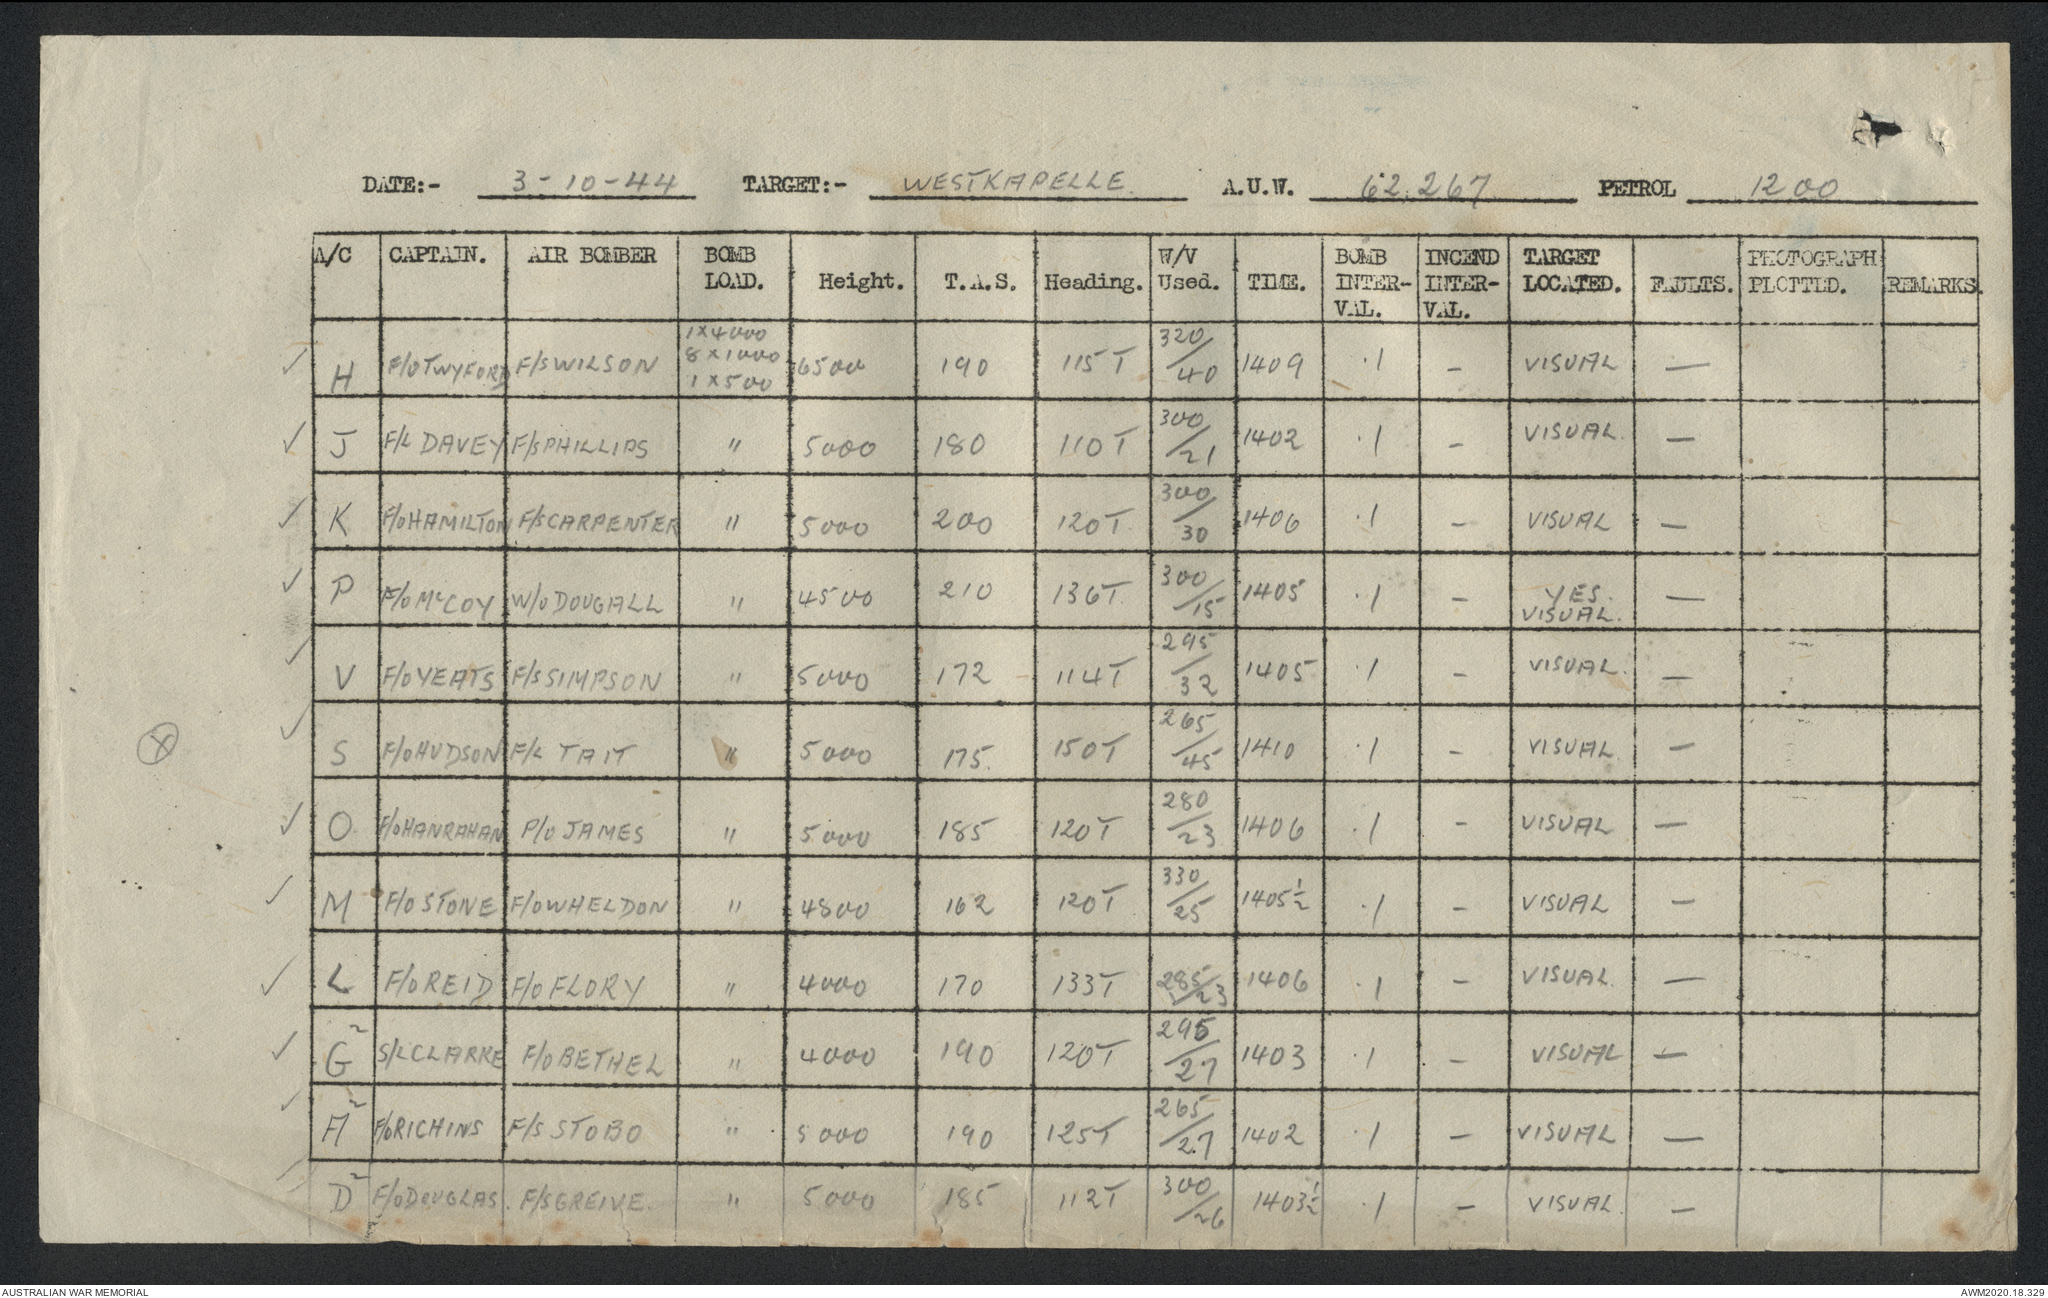 DATE:- 3-10-44 TARGET:- WESTKAPELLE. A.U.W. 62,267 PETROL 1200
A/C CAPTAIN. AIR BOMBER BOMB LOAD. Height. T.A.S. Heading. W/V Used. TIME. BOMB INTER-VAL. INCEND INTER-VAL. TARGET LOCATED. FAULTS. PHOTOGRAPH PLOTTED. REMARKS.
✓ H F/O TWYFORD F/S WILSON 1x4000 8x1000 1x500 6500 190 115T 320/40 1409 .1 – VISUAL —
✓ J F/L DAVEY F/S PHILLIPS " 5000 180 110T 300/21 1402 .1 – VISUAL. —
✓ K F/O HAMILTON F/S CARPENTER " 5000 200 120T 300/30 1406 .1 – VISUAL —
✓ P F/O McCOY W/O DOUGALL " 4500 210 136T 300/15 1405 .1 – YES. VISUAL. —
✓ V F/O YEATS F/S SIMPSON " 5000 172 114T 295/32 1405 .1 – VISUAL. —
✓ S F/O HUDSON F/L TAIT " 5000 175. 150T 265/45 1410 .1 – VISUAL. —
✓ O F/O HANRAHAN P/O JAMES " 5000 185 120T 280/23 1406 .1 – VISUAL —
✓ M F/O STONE F/O WHELDON " 4800 162 120T 330/25 1405½ .1 – VISUAL —
✓ L F/O REID F/O FLORY " 4000 170 133T 285/23 1406 .1 – VISUAL. —
✓ G² S/L CLARKE F/O BETHEL " 4000 190 120T 295/27 1403 .1 – VISUAL —
✓ A² F/O RICHINS F/S STOBO " 5000 190 125T 265/27 1402 .1 – VISUAL —
✓ D² F/O DOUGLAS. F/S GREIVE. " 5000 185 112T 300/26 1403½ .1 – VISUAL. —
AUSTRALIAN WAR MEMORIAL AWM2020.18.329